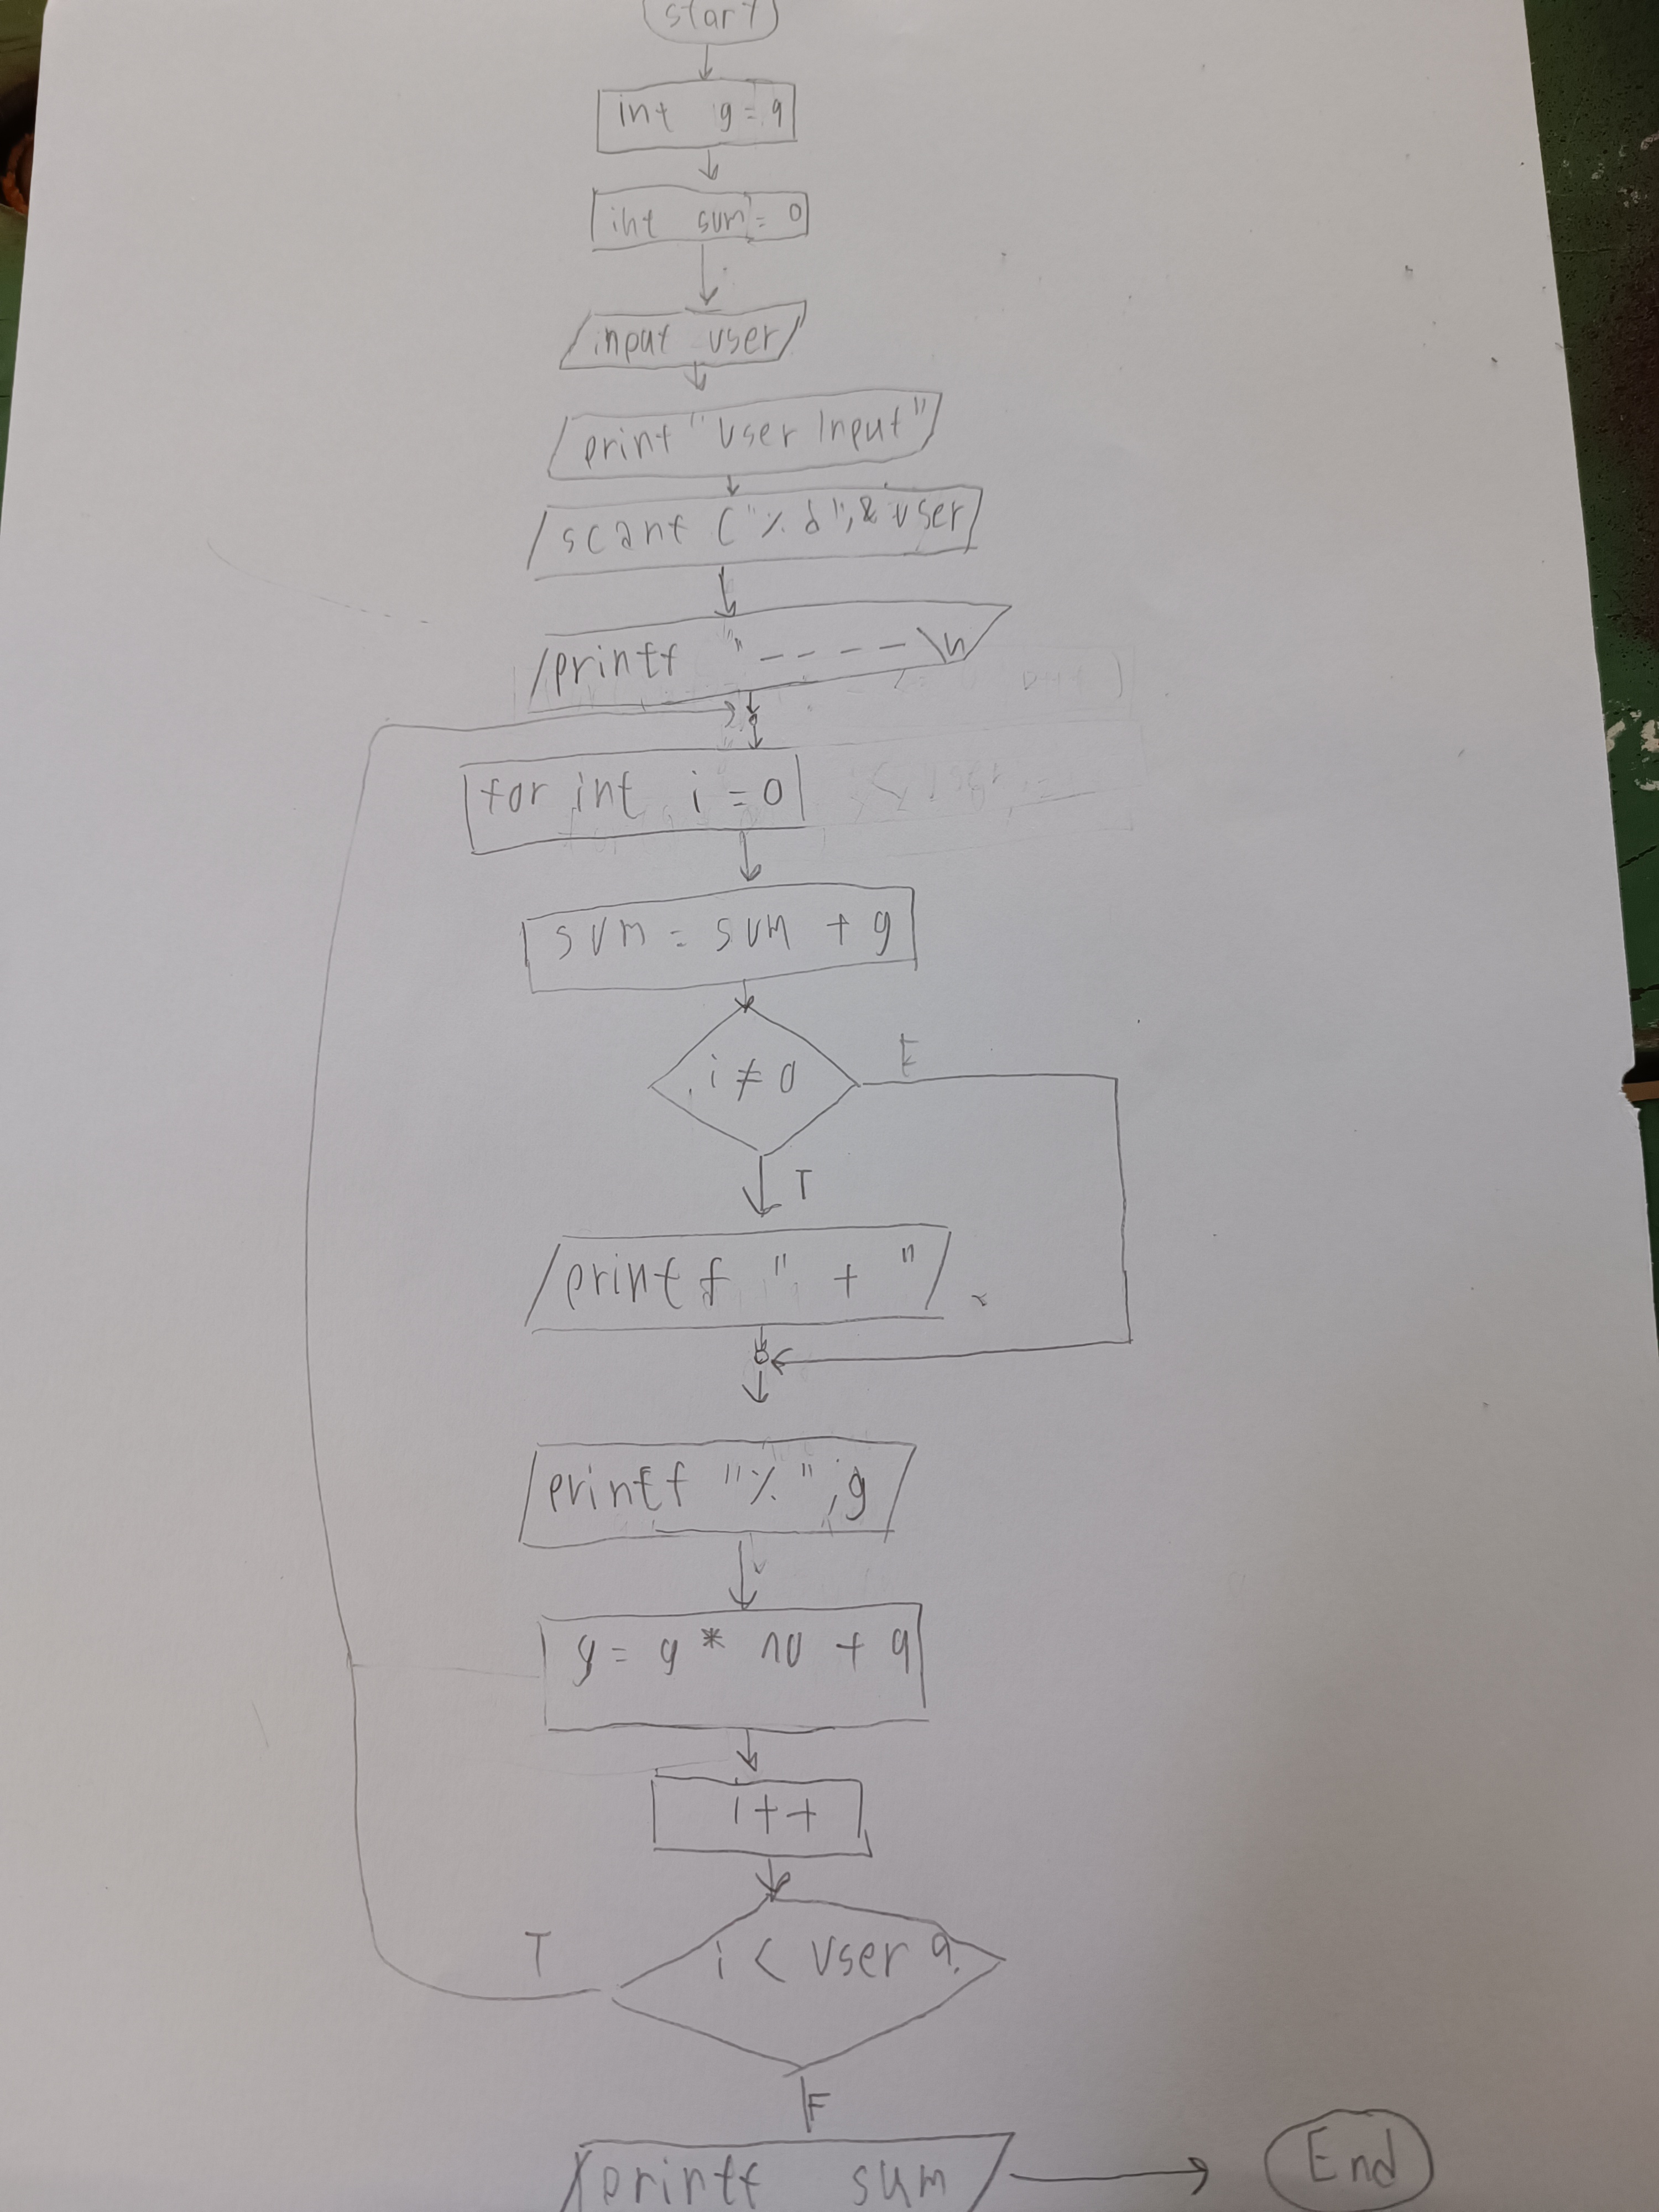 start
int g = 9
int sum = 0
input user
print "User Input"
scanf ("%d", & user
printf "- - - - \n
for int i = 0
sum = sum + g
i ≠ 0
F
T
printf " + "
printf "%", g
g = g * 10 + 9
i++
i < user ?
T
F
printf sum
End